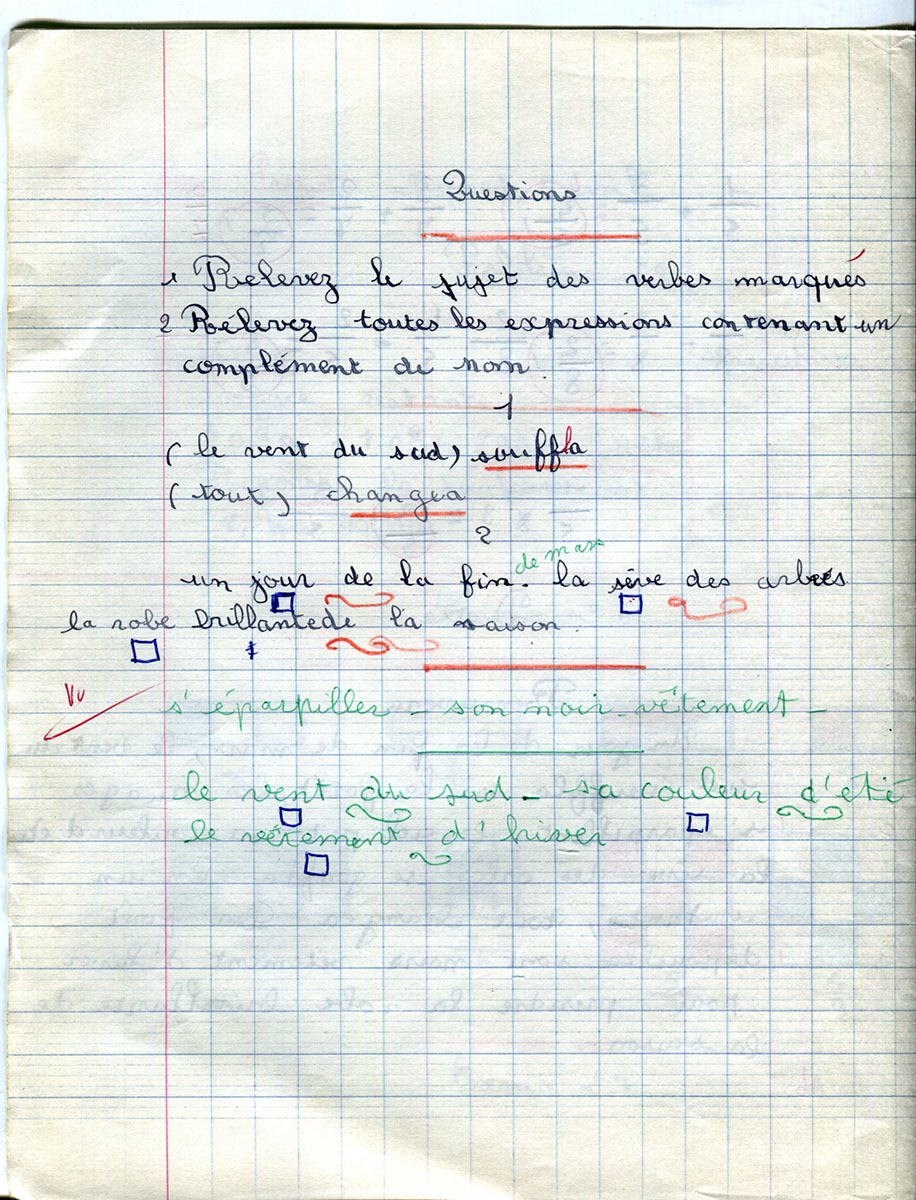 Questions
1 Relevez le sujet des verbes marqués
2 Rélevez toutes les expressions contenant un
complément de nom.
1
(le vent du sud) souffla
(tout) changea
2
de mars
un jour de la fin. la sève des arbres.
la robe brillante de la saison.
Vu
s'éparpiller - son noir vêtement -
le vent du sud - sa couleur d'été
le vêtement d'hiver